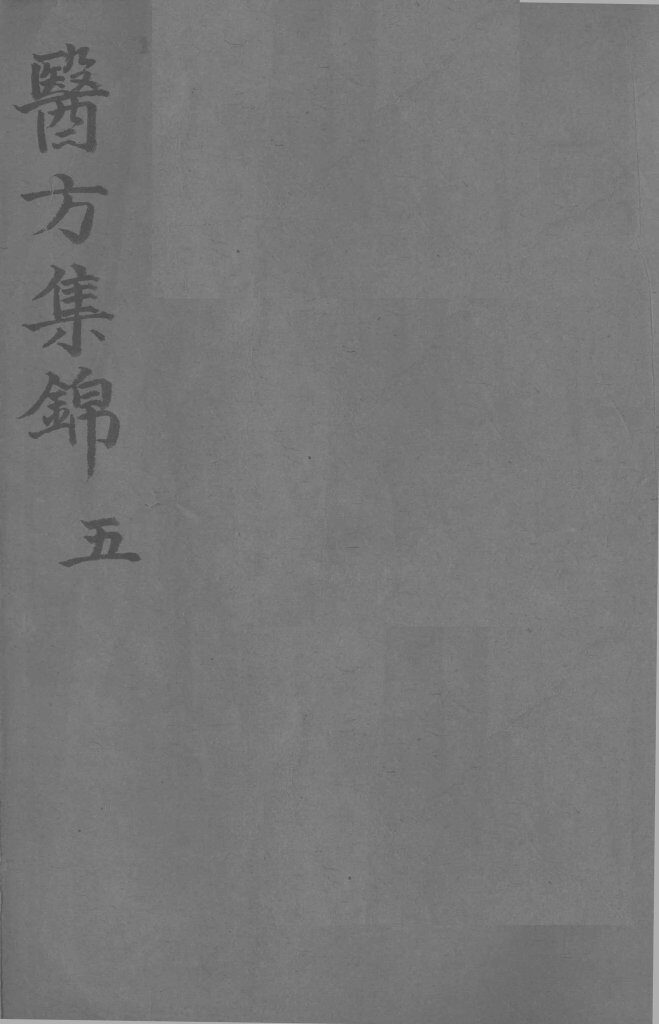 醫方集錦
五